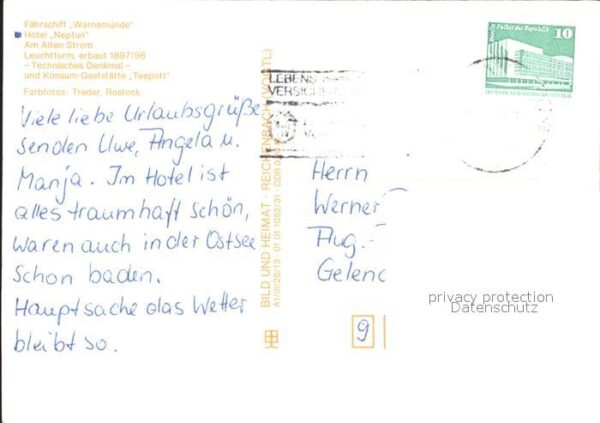 Fährschiff „Warnemünde"
Hotel „Neptun"
Am Alten Strom
Leuchtturm, erbaut 1897/98
– Technisches Denkmal –
und Konsum-Gaststätte „Teepott"
Farbfotos: Treder, Rostock
Viele liebe Urlaubsgrüße
senden Uwe, Angela u.
Manja. Im Hotel ist
alles traumhaft schön,
waren auch in der Ostsee
schon baden.
Hauptsache das Wetter
bleibt so.
BILD UND HEIMAT · REICHENBACH (VOGTL)
A1/III/26/13 01 01 1052/31 DDR
LEBENS
VERSIC
10
Herrn
Werner
Aug.
Gelenc
9
privacy protection
Datenschutz